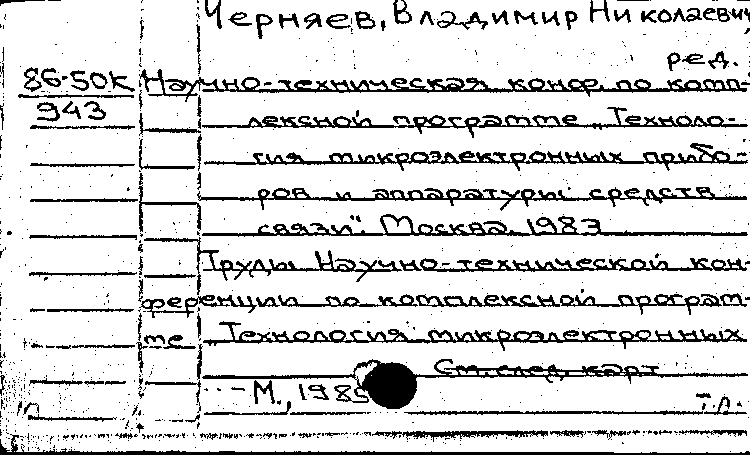 Черняев, Владимир Николаевич,
ред.
86-50к Научно-техническая конф. по комп-
943 лексной программе „Техноло-
гия микроэлектронных прибо-
ров и аппаратуры средств
связи". Москва. 1983
Труды Научно-технической кон-
ференции по комплексной програм-
ме „Технология микроэлектронных
См. след. карт
- М., 198
т.п.